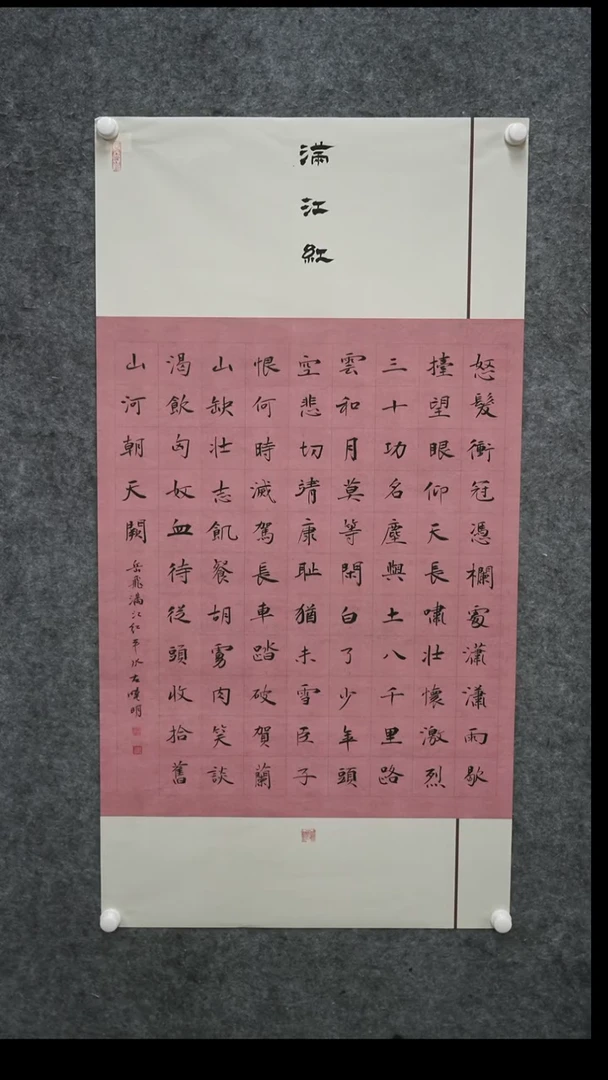 滿江紅
怒髮衝冠憑欄處瀟瀟雨歇
擡望眼仰天長嘯壯懷激烈
三十功名塵與土八千里路
雲和月莫等閑白了少年頭
空悲切靖康耻猶未雪臣子
恨何時滅駕長車踏破賀蘭
山缺壯志飢餐胡虜肉笑談
渴飲匈奴血待從頭收拾舊
山河朝天闕
岳飛滿江紅